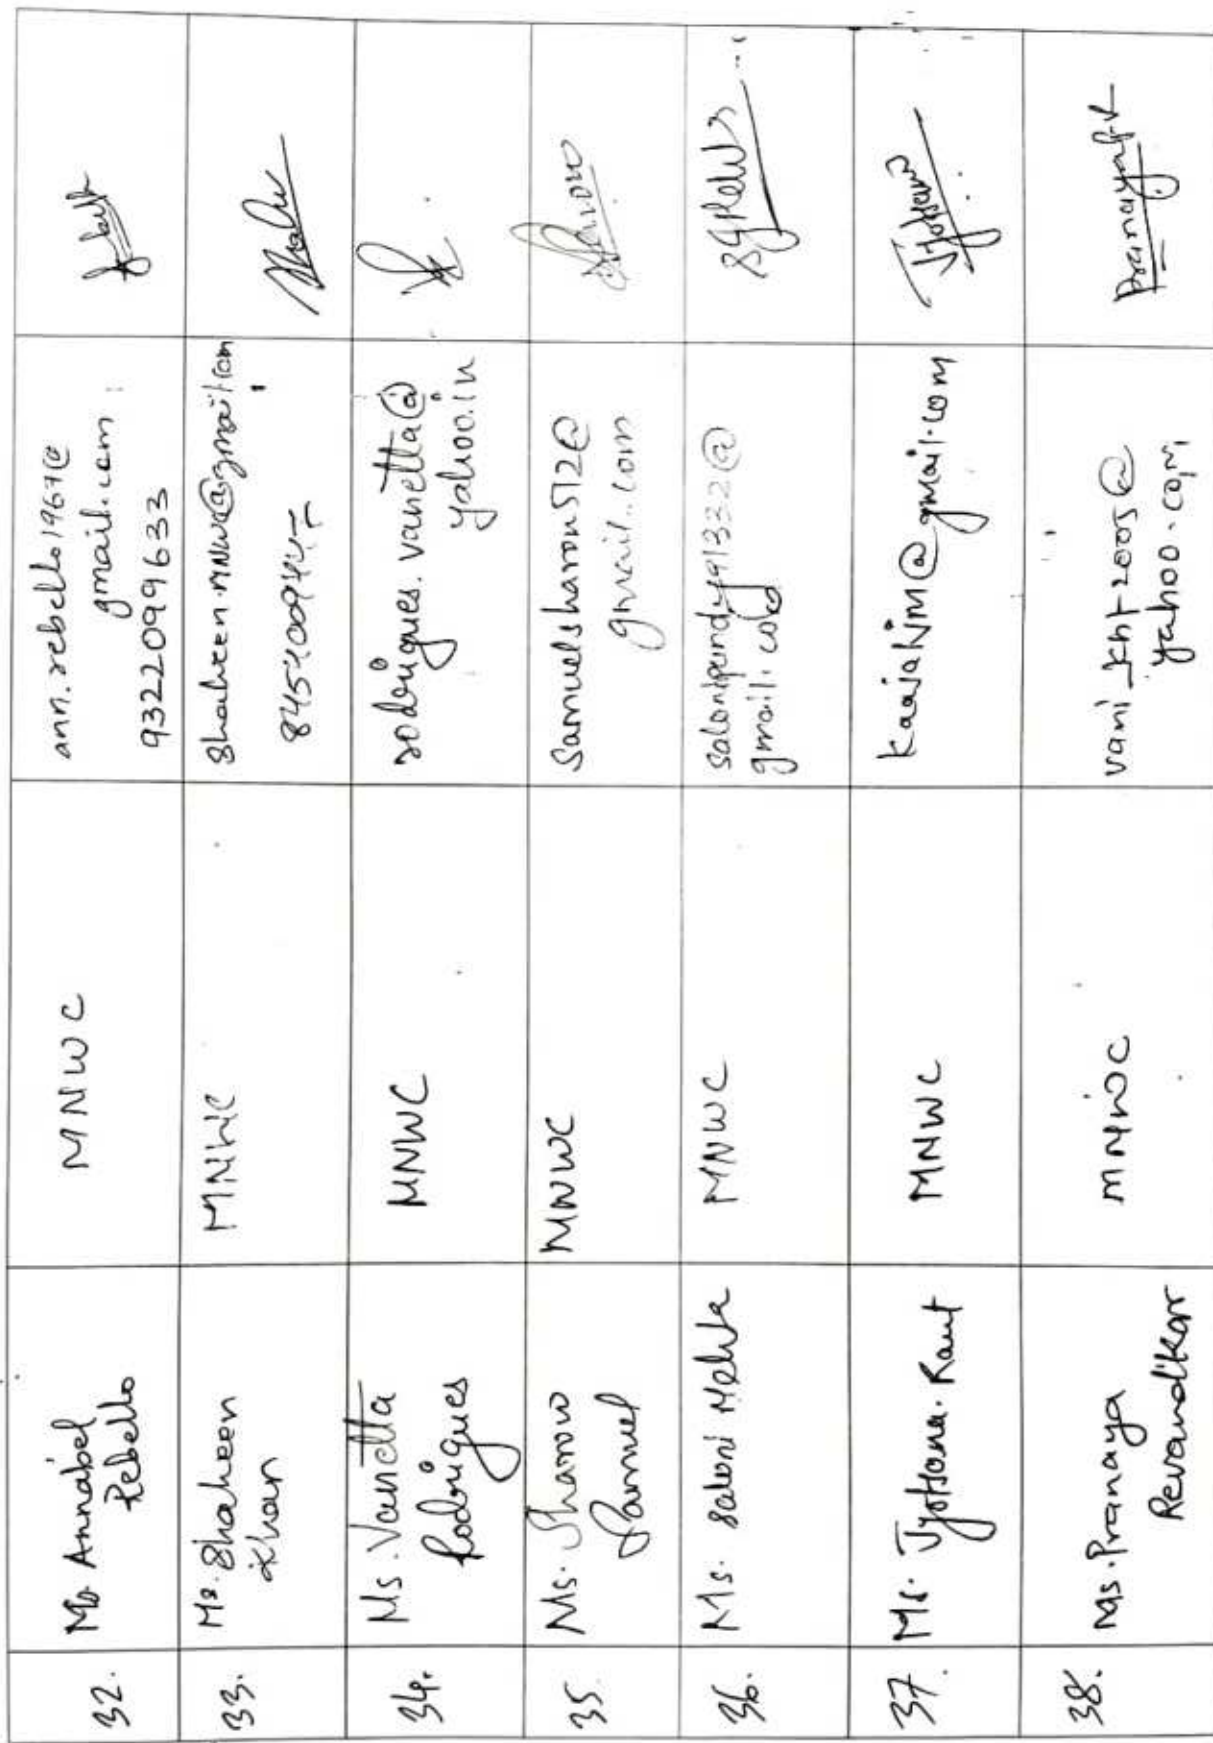 32.
Ms Annabel
Rebello
MNWC
ann.rebello1967@
gmail.com
9322099633
33.
Ms. Shaheen
Khan
MNWC
Shaheen.MNW@gmail.com
34.
Ms. Vanetta
Rodrigues
MNWC
rodrigues.vanetta@
yahoo.in
35.
Ms. Sharon
Samuel
MNWC
Samuelsharon512@
gmail.com
Sharon
36.
Ms. Saloni Mehta
MNWC
gmail.com
37.
Ms. Jyotsana. Raut
MNWC
@gmail.com
38.
Ms. Pranaya
Revandkar
MNWC
vani_kht2005@
yahoo.com